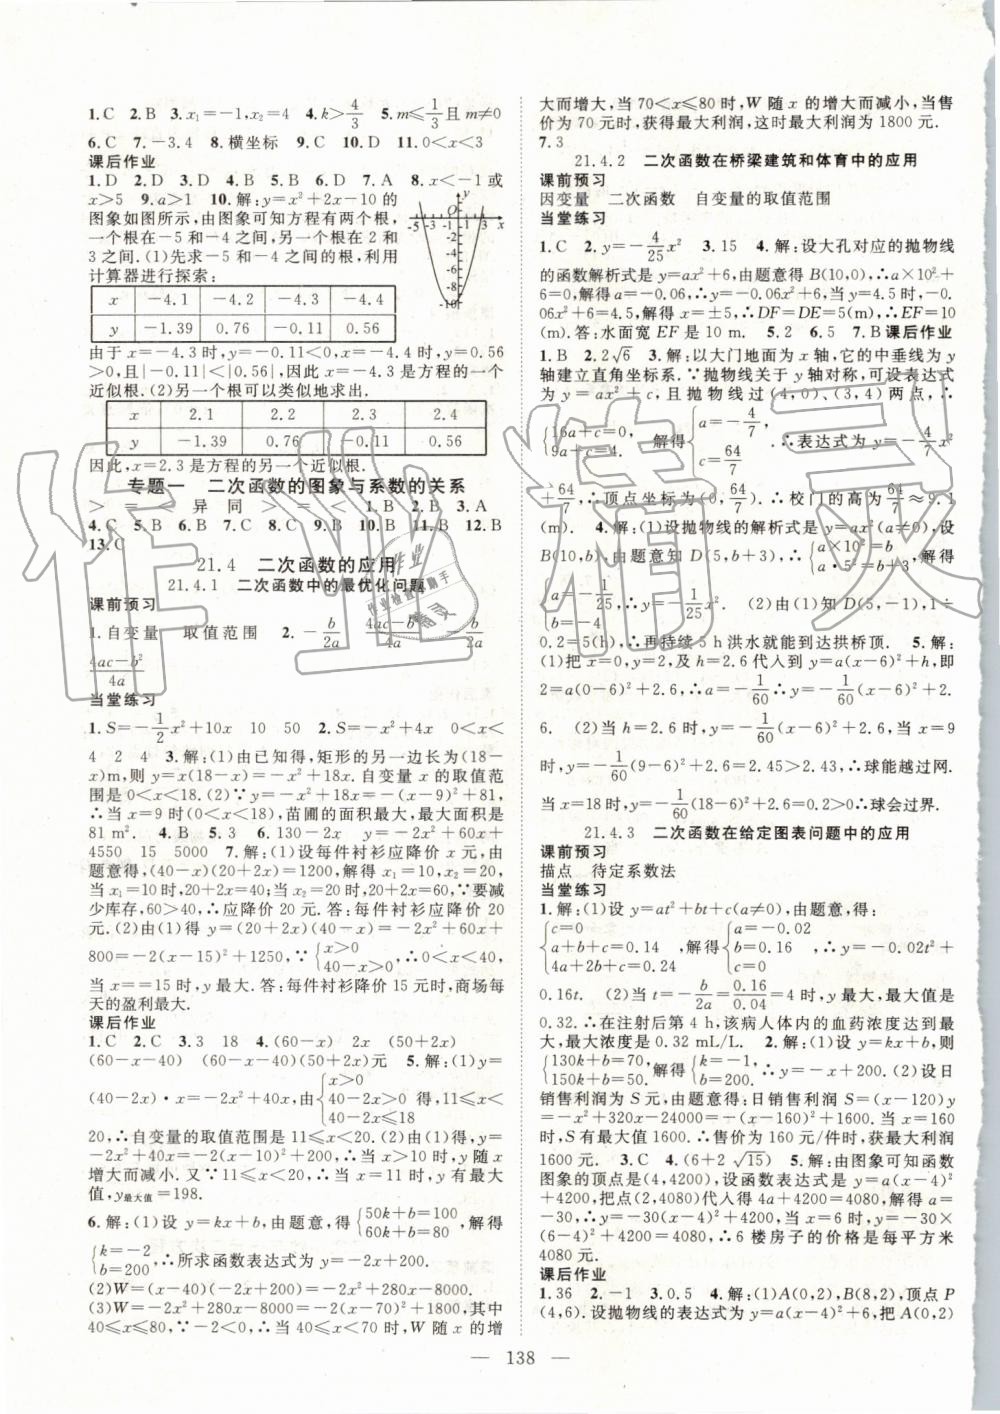 1.C 2.B 3.x₁=-1,x₂=4 4.k>4/3 5.m≤1/3且 m≠0
6.C 7.-3.4 8.横坐标 9.C 10.D 11.0<x<3
课后作业
1.D 2.D 3.D 4.B 5.B 6.D 7.A 8.x<-1 或
x>5 9.a>1 10.解:y=x²+2x-10 的
图象如图所示,由图象可知方程有两个根,
一个在-5 和-4 之间,另一个根在 2 和
3 之间.(1)先求-5 和-4 之间的根,利用
计算器进行探索:
x -4.1 -4.2 -4.3 -4.4
y -1.39 0.76 -0.11 0.56
由于 x=-4.3 时,y=-0.11<0;x=-4.4 时,y=0.56
>0,且|-0.11|<|0.56|,因此 x=-4.3 是方程的一个
近似根.(2)另一个根可以类似地求出.
x 2.1 2.2 2.3 2.4
y -1.39 0.76 -0.11 0.56
因此,x=2.3 是方程的另一个近似根.
专题一 二次函数的图象与系数的关系
> = < 异 同 > = < 1.B 2.B 3.A
4.C 5.B 6.B 7.D 8.C 9.B 10.B 11.B 12.B
13.C
21.4 二次函数的应用
21.4.1 二次函数中的最优化问题
课前预习
1.自变量 取值范围 2.-b/2a (4ac-b²)/4a -b/2a
(4ac-b²)/4a
当堂练习
1.S=-1/2x²+10x 10 50 2.S=-x²+4x 0<x<
4 2 4 3.解:(1)由已知得,矩形的另一边长为(18-
x)m,则 y=x(18-x)=-x²+18x.自变量 x 的取值范
围是 0<x<18.(2)∵y=-x²+18x=-(x-9)²+81,
∴当 x=9 时(0<9<18),苗圃的面积最大,最大面积是
81 m². 4.B 5.3 6.130-2x y=-2x²+60x+
4550 15 5000 7.解:设每件衬衫应降价 x 元,由
题意得,(40-x)(20+2x)=1200,解得 x₁=10,x₂=20,
当 x₁=10 时,20+2x=40;当 x₂=20 时,20+2x=60,∵要减
少库存,60>40,∴应降价 20 元.答:每件衬衫应降价 20
元.(2)由(1)得 y=(20+2x)(40-x)=-2x²+60x+
800=-2(x-15)²+1250,∵{x>0 40-x>0,∴0<x<40,
当 x==15 时,y 最大.答:每件衬衫降价 15 元时,商场每
天的盈利最大.
课后作业
1.C 2.C 3.3 18 4.(60-x) 2x (50+2x)
(60-x)(50+2x) (60-x-40)(50+2x) 5.解:(1)y=
(40-2x)·x=-2x²+40x,由{x>0 40-2x>0 40-2x≤18 得,11≤x<
20,∴自变量的取值范围是 11≤x<20.(2)由(1)得,y=
-2x²+40x=-2(x-10)²+200,∵-2<0,∴y 随 x
增大而减小.又∵11≤x<20,∴当 x=11 时,y 有最大
值,y最大值=198.
6.解:(1)设 y=kx+b,由题意,得{50k+b=100 60k+b=80,解得
{k=-2 b=200,∴所求函数表达式为 y=-2x+200.
(2)W=(x-40)(-2x+200)=-2x²+280x-8000.
(3)W=-2x²+280x-8000=-2(x-70)²+1800,其中
40≤x≤80,∵-2<0,∴当 40≤x≤70 时,W 随 x 的增
大而增大,当 70<x≤80 时,W 随 x 的增大而减小,当售
价为 70 元时,获得最大利润,这时最大利润为 1800 元.
7.3
21.4.2 二次函数在桥梁建筑和体育中的应用
课前预习
因变量 二次函数 自变量的取值范围
当堂练习
1.C 2.y=-4/25x² 3.15 4.解:设大孔对应的抛物线
的函数解析式是 y=ax²+6,由题意得 B(10,0),∴a×10²+
6=0,解得 a=-0.06,∴y=-0.06x²+6,当 y=4.5 时,-0.
06x²+6=4.5,解得 x=±5,∴DF=DE=5(m),∴EF=10
(m).答:水面宽 EF 是 10 m. 5.2 6.5 7.B 课后作业
1.B 2.2√6 3.解:以大门地面为 x 轴,它的中垂线为 y
轴建立直角坐标系.∵抛物线关于 y 轴对称,可设表达式
为 y=ax²+c,且抛物线过(4,0)、(3,4)两点,∴
{16a+c=0, 9a+c=4. 解得{a=-4/7 c=64/7,∴表达式为 y=-4/7x²
+64/7,∴顶点坐标为(0,64/7),∴校门的高为 64/7≈9.1
(m). 4.解:(1)设抛物线的解析式是 y=ax²+b(a≠0),设
B(10,b),由题意知 D(5,b+3),∴{a×10²=b a×5²=b+3,解得
{a=-1/25, b=-4,∴y=-1/25x². (2)由(1)知 D(5,-1),1÷
0.2=5(h),∴再持续 5 h 洪水就能到达拱桥顶. 5.解:
(1)把 x=0,y=2,及 h=2.6 代入到 y=a(x-6)²+h,即
2=a(0-6)²+2.6,∴a=-1/60,∴y=-1/60(x-6)²+2.
6. (2)当 h=2.6 时,y=-1/60(x-6)²+2.6,当 x=9
时,y=-1/60(9-6)²+2.6=2.45>2.43,∴球能越过网.
当 x=18 时,y=-1/60(18-6)²+2.6=0.2>0,∴球会过界.
21.4.3 二次函数在给定图表问题中的应用
课前预习
描点 待定系数法
当堂练习
1.解:(1)设 y=at²+bt+c(a≠0),由题意,得:
{c=0 a+b+c=0.14 4a+2b+c=0.24,解得{a=-0.02 b=0.16 c=0,∴y=-0.02t²+
0.16t. (2)当 t=-b/2a=0.16/0.04=4 时,y 最大,最大值是
0.32.∴在注射后第 4 h,该病人体内的血药浓度达到最
大,最大浓度为 0.32 mL/L. 2.解:(1)设 y=kx+b,则
{130k+b=70, 150k+b=50. 解得{k=-1, b=200.,∴y=-x+200.(2)设日
销售利润为 S 元,由题意得:日销售利润 S=(x-120)y
=-x²+320x-24000=-(x-160)²+1600.当 x=160
时,S 有最大值 1600.∴售价为 160 元/件时,获最大利润
1600 元. 3.C 4.(6+2√15) 5.解:由图象可知函数
图象的顶点是(4,4200),设函数表达式是 y=a(x-4)²
+4200,把点(2,4080)代人得 4a+4200=4080,解得 a=
-30,∴y=-30(x-4)²+4200,当 x=6 时,y=-30×
(6-4)²+4200=4080,∴6 楼房子的价格是每平方米
4080 元.
课后作业
1.36 2.-1 3.0.5 4.解:(1)A(0,2),B(8,2),顶点 P
(4,6).设抛物线的表达式为 y=a(x-4)²+6,把 A(0,2)
— 138 —